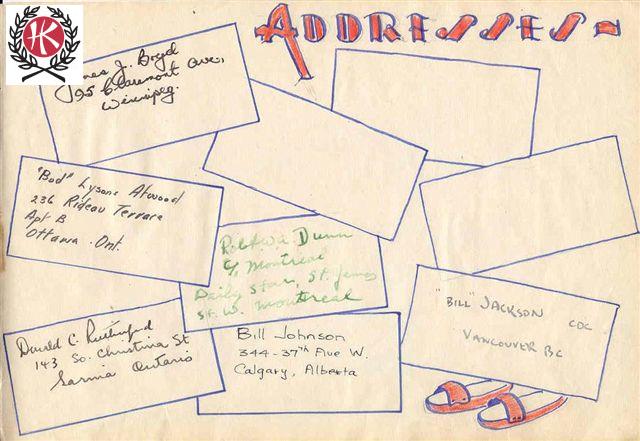 ADDRESSES~
HK
J. Boyd
95 Claremont Ave,
Winnipeg.
"Bod" Lysons Atwood
236 Rideau Terrace
Apt B
Ottawa Ont.
Dunn
c/o Montreal
Daily Star, St. James
St. W. Montreal
"BILL" JACKSON CDC
VANCOUVER BC
Donald C. Rutherford
143 So. Christina St
Sarnia Ontario
Bill Johnson
344-37th Ave W.
Calgary, Alberta